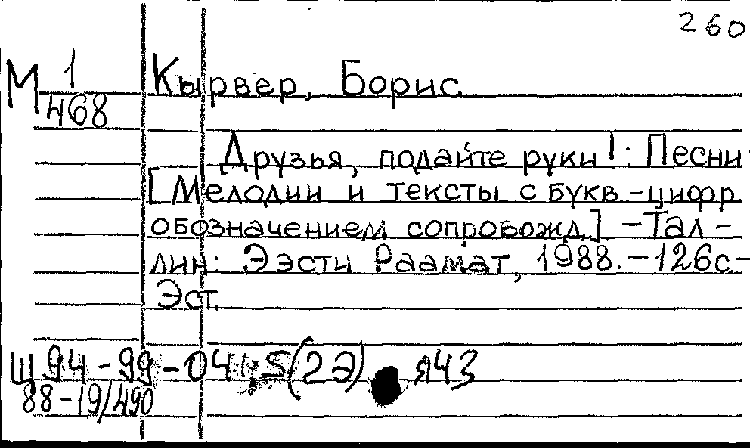 260
М 1/468
Кырвер, Борис
Друзья, подайте руки!: Песни
[Мелодии и тексты с букв.-цифр
обозначением сопровожд.] -Тал-
лин: Ээсти Раамат, 1988.-126с-
Эст.
Щ94-99-04 (2Э) я43
88-19/490